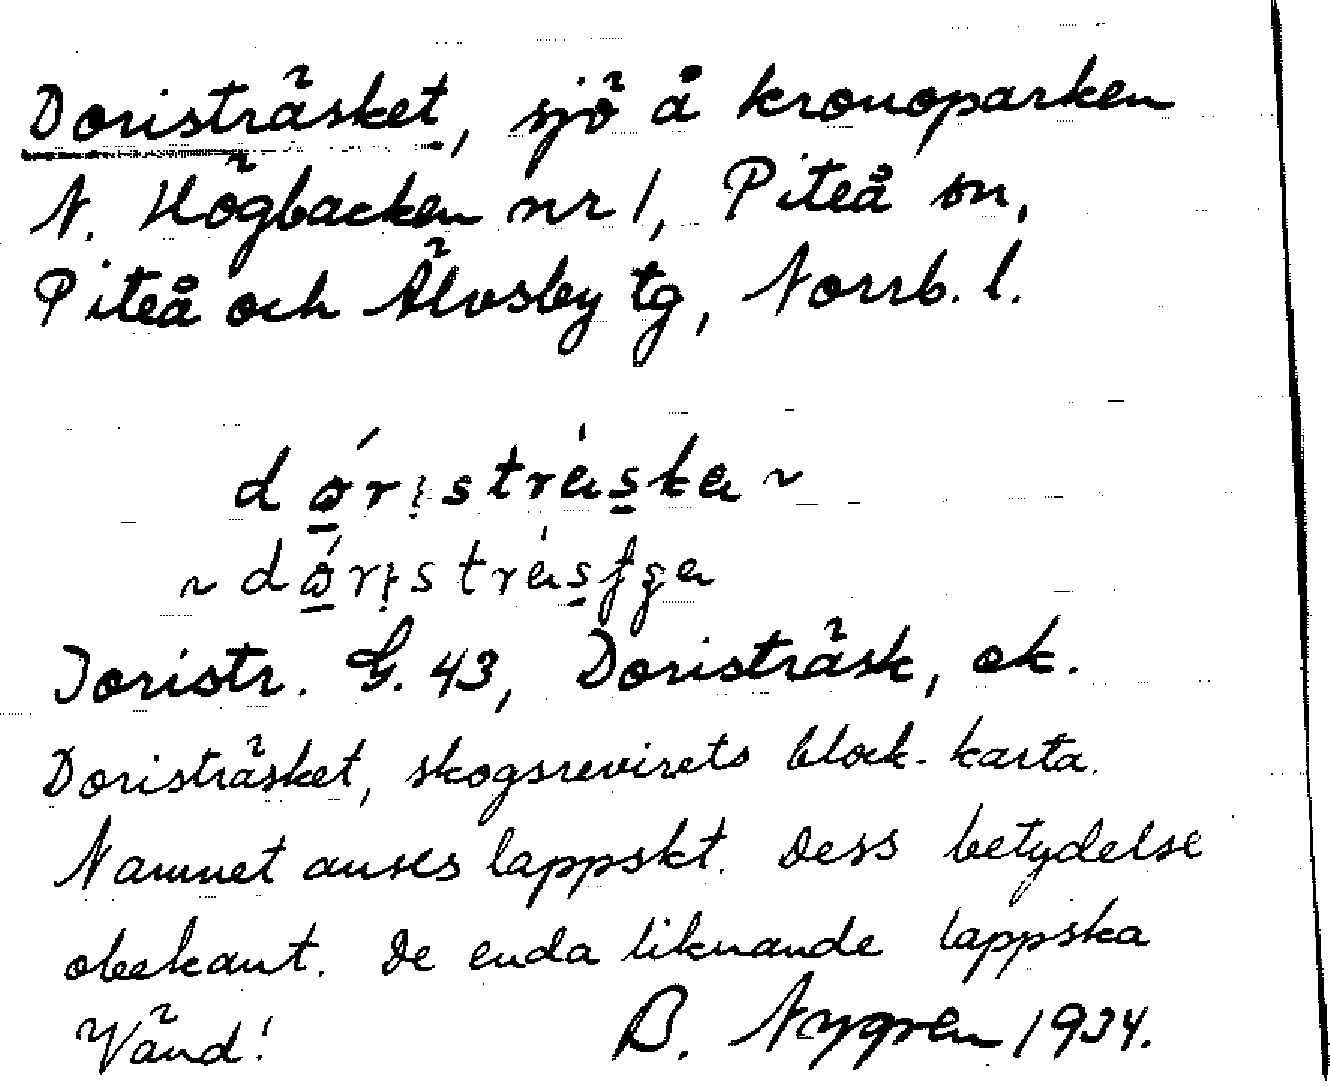 Doristräsket, sjö å kronoparken
N. Högbacken nr 1, Piteå sn,
Piteå och Älvsby tg, Norrb. l.
~
~
Joristr. G. 43, Doristräsk, ek.
Doristräsket, skogsrevirets block-karta.
Namnet anses lappskt. Dess betydelse
obekant. De enda liknande lappska
Vänd! B. Nygren 1934.